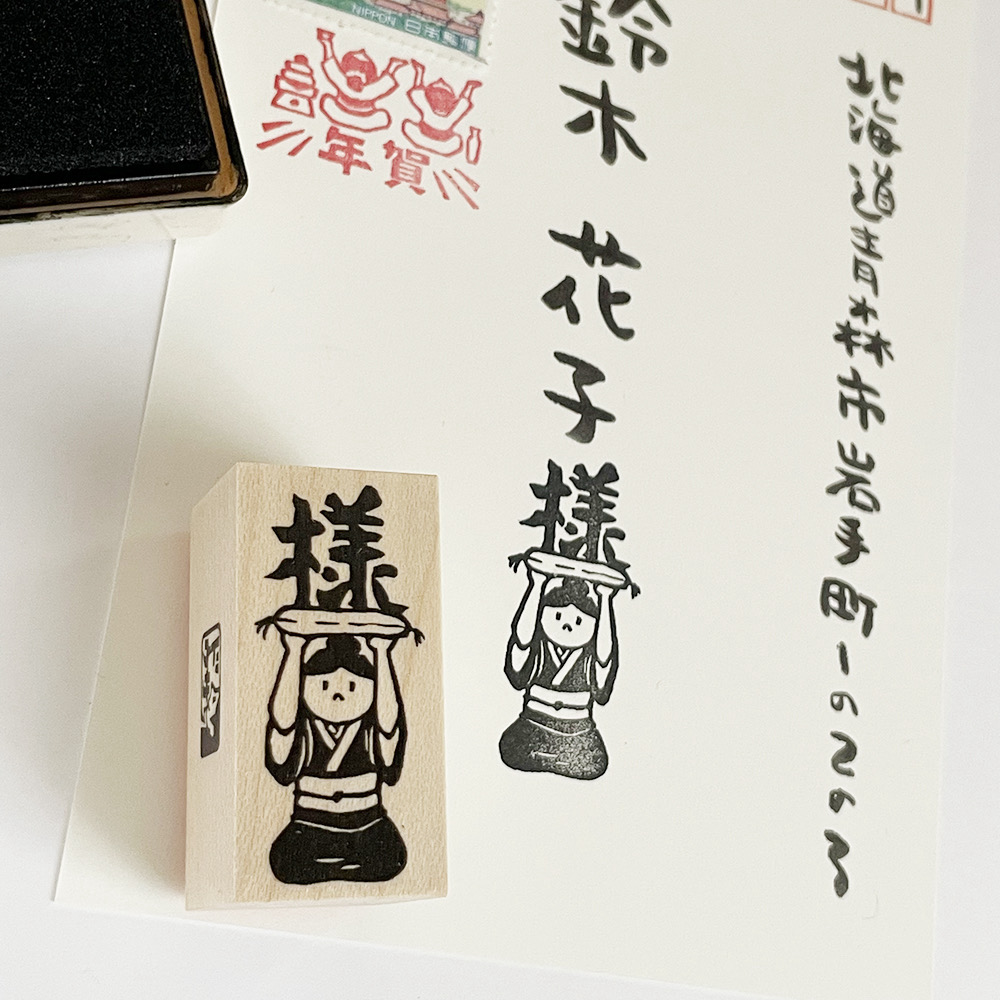 北海道青森市岩手町1の2の3
鈴木 花子様
NIPPON 日本郵便
年賀
様